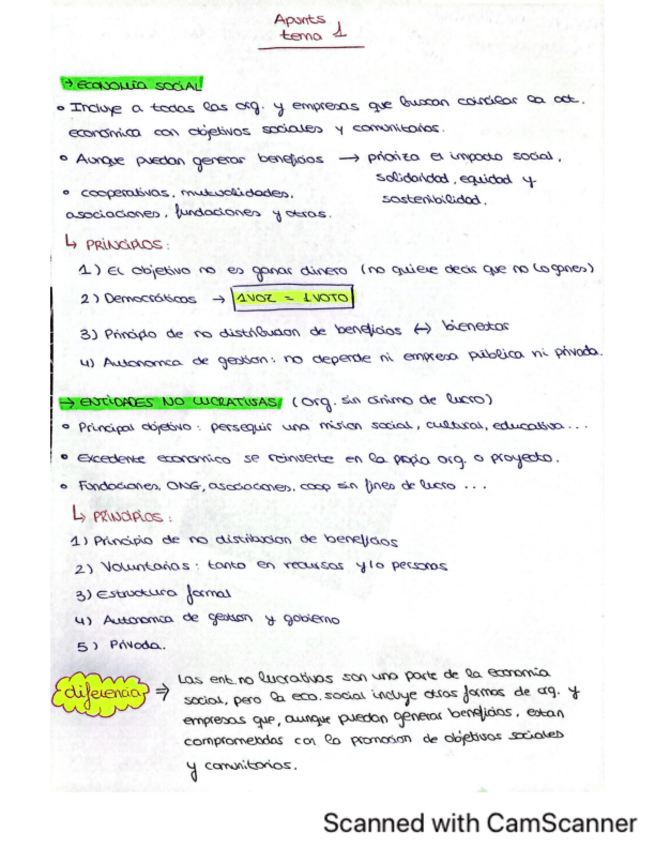 Apunts
tema 1
→ ECONOMIA SOCIAL
• Incluye a todas las org. y empresas que buscan conciliar la act.
económica con objetivos sociales y comunitarios.
• Aunque puedan generar beneficios → prioriza el impacto social,
solidaridad, equidad y
sostenibilidad.
• cooperativas, mutualidades,
asociaciones, fundaciones y otras.
↳ PRINCIPIOS:
1) El objetivo no es ganar dinero (no quiere decir que no lo ganes)
2) Democráticos → 1 VOZ = 1 VOTO
3) Principio de no distribucion de beneficios ↔ bienestar
4) Autonomia de gestion: no depende ni empresa pública ni privada.
→ ENTIDADES NO LUCRATIVAS (Org. sin ánimo de lucro)
• Principal objetivo: perseguir una mision social, cultural, educativa...
• Excedente economico se reinvierte en la propia org. o proyecto.
• Fundaciones, ONG, asociaciones, coop sin fines de lucro ...
↳ PRINCIPIOS:
1) Principio de no distribucion de beneficios
2) Voluntarias: tanto en recursos y/o personas
3) Estructura formal
4) Autonomia de gestion y gobierno
5) Privada.
diferencia ⇒ Las ent. no lucrativas son una parte de la economía
social, pero la eco. social incluye otras formas de org. y
empresas que, aunque puedan generar beneficios, estan
comprometidas con la promocion de objetivos sociales
y comunitarios.
Scanned with CamScanner